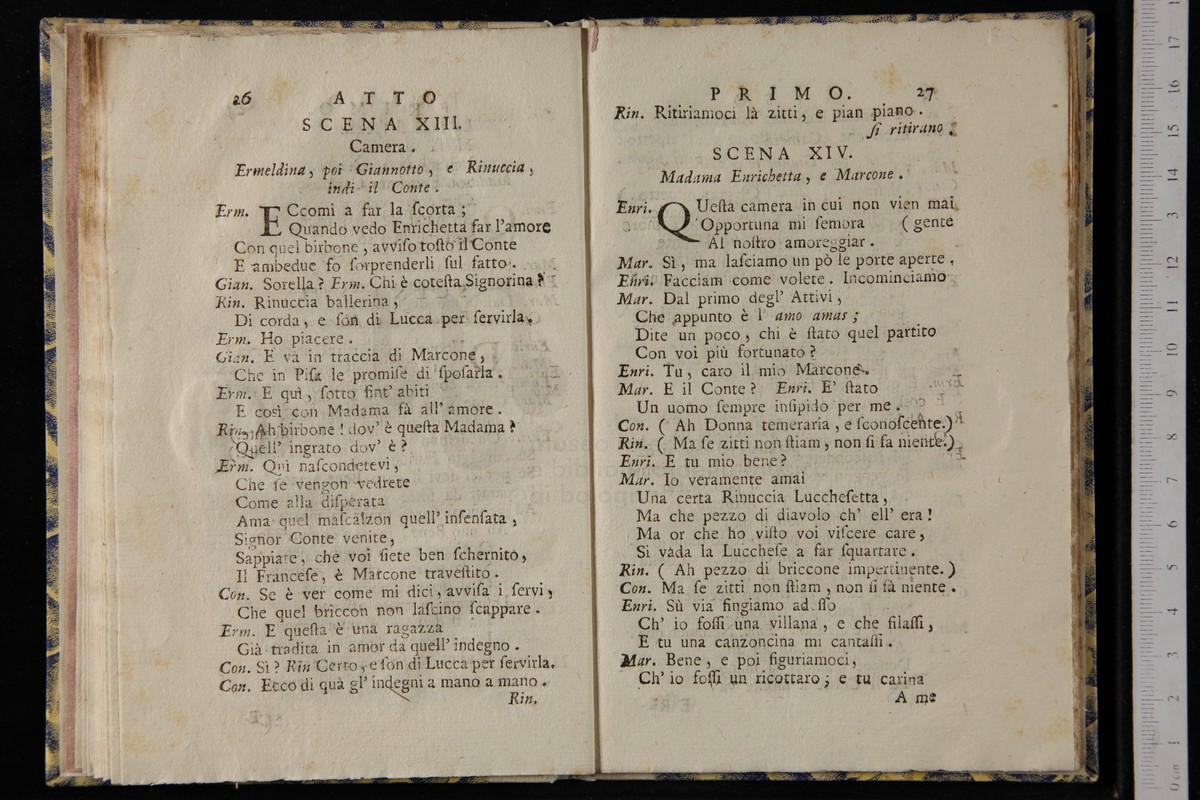 26 ATTO
SCENA XIII.
Camera.
Ermeldina, poi Giannotto, e Rinuccia,
indi il Conte.
Erm. ECcomi a far la ſcorta;
Quando vedo Enrichetta far l'amore
Con quel birbone, avviſo toſto il Conte
E ambedue fo ſorprenderli ſul fatto.
Gian. Sorella? Erm. Chi è coteſta Signorina?
Rin. Rinuccia ballerina,
Di corda, e ſon di Lucca per ſervirla.
Erm. Ho piacere.
Gian. E va in traccia di Marcone,
Che in Piſa le promiſe di ſpoſarla.
Erm. E quì, ſotto fint' abiti
E così con Madama fà all' amore.
Rin. Ah birbone! dov' è queſta Madama?
Quell' ingrato dov' è?
Erm. Quì naſcondetevi,
Che ſe vengon vedrete
Come alla diſperata
Ama quel maſcalzon quell' inſenſata,
Signor Conte venite,
Sappiate, che voi ſiete ben ſchernito,
Il Franceſe, è Marcone traveſtito.
Con. Se è ver come mi dici, avviſa i ſervi,
Che quel briccon non laſcino ſcappare.
Erm. E queſta è una ragazza
Già tradita in amor da quell' indegno.
Con. Sì? Rin Certo, e ſon di Lucca per ſervirla.
Con. Ecco di quà gl' indegni a mano a mano.
Rin.
PRIMO. 27
Rin. Ritiriamoci là zitti, e pian piano.
ſi ritirano.
SCENA XIV.
Madama Enrichetta, e Marcone.
Enri. QUeſta camera in cui non vien mai
Opportuna mi ſembra (gente
Al noſtro amoreggiar.
Mar. Sì, ma laſciamo un pò le porte aperte,
Enri. Facciam come volete. Incominciamo
Mar. Dal primo degl' Attivi,
Che appunto è l' amo amas;
Dite un poco, chi è ſtato quel partito
Con voi più fortunato?
Enri. Tu, caro il mio Marcone.
Mar. E il Conte? Enri. E' ſtato
Un uomo ſempre inſipido per me.
Con. (Ah Donna temeraria, e ſconoſcente.)
Rin. (Ma ſe zitti non ſtiam, non ſi fa niente.)
Enri. E tu mio bene?
Mar. Io veramente amai
Una certa Rinuccia Luccheſetta,
Ma che pezzo di diavolo ch' ell' era!
Ma or che ho viſto voi viſcere care,
Si vada la Luccheſe a far ſquartare.
Rin. (Ah pezzo di briccone impertinente.)
Con. Ma ſe zitti non ſtiam, non ſi fà niente.
Enri. Sù via fingiamo adeſſo
Ch' io foſſi una villana, e che filaſſi,
E tu una canzoncina mi cantaſſi.
Mar. Bene, e poi figuriamoci,
Ch' io foſſi un ricottaro; e tu carina
A me